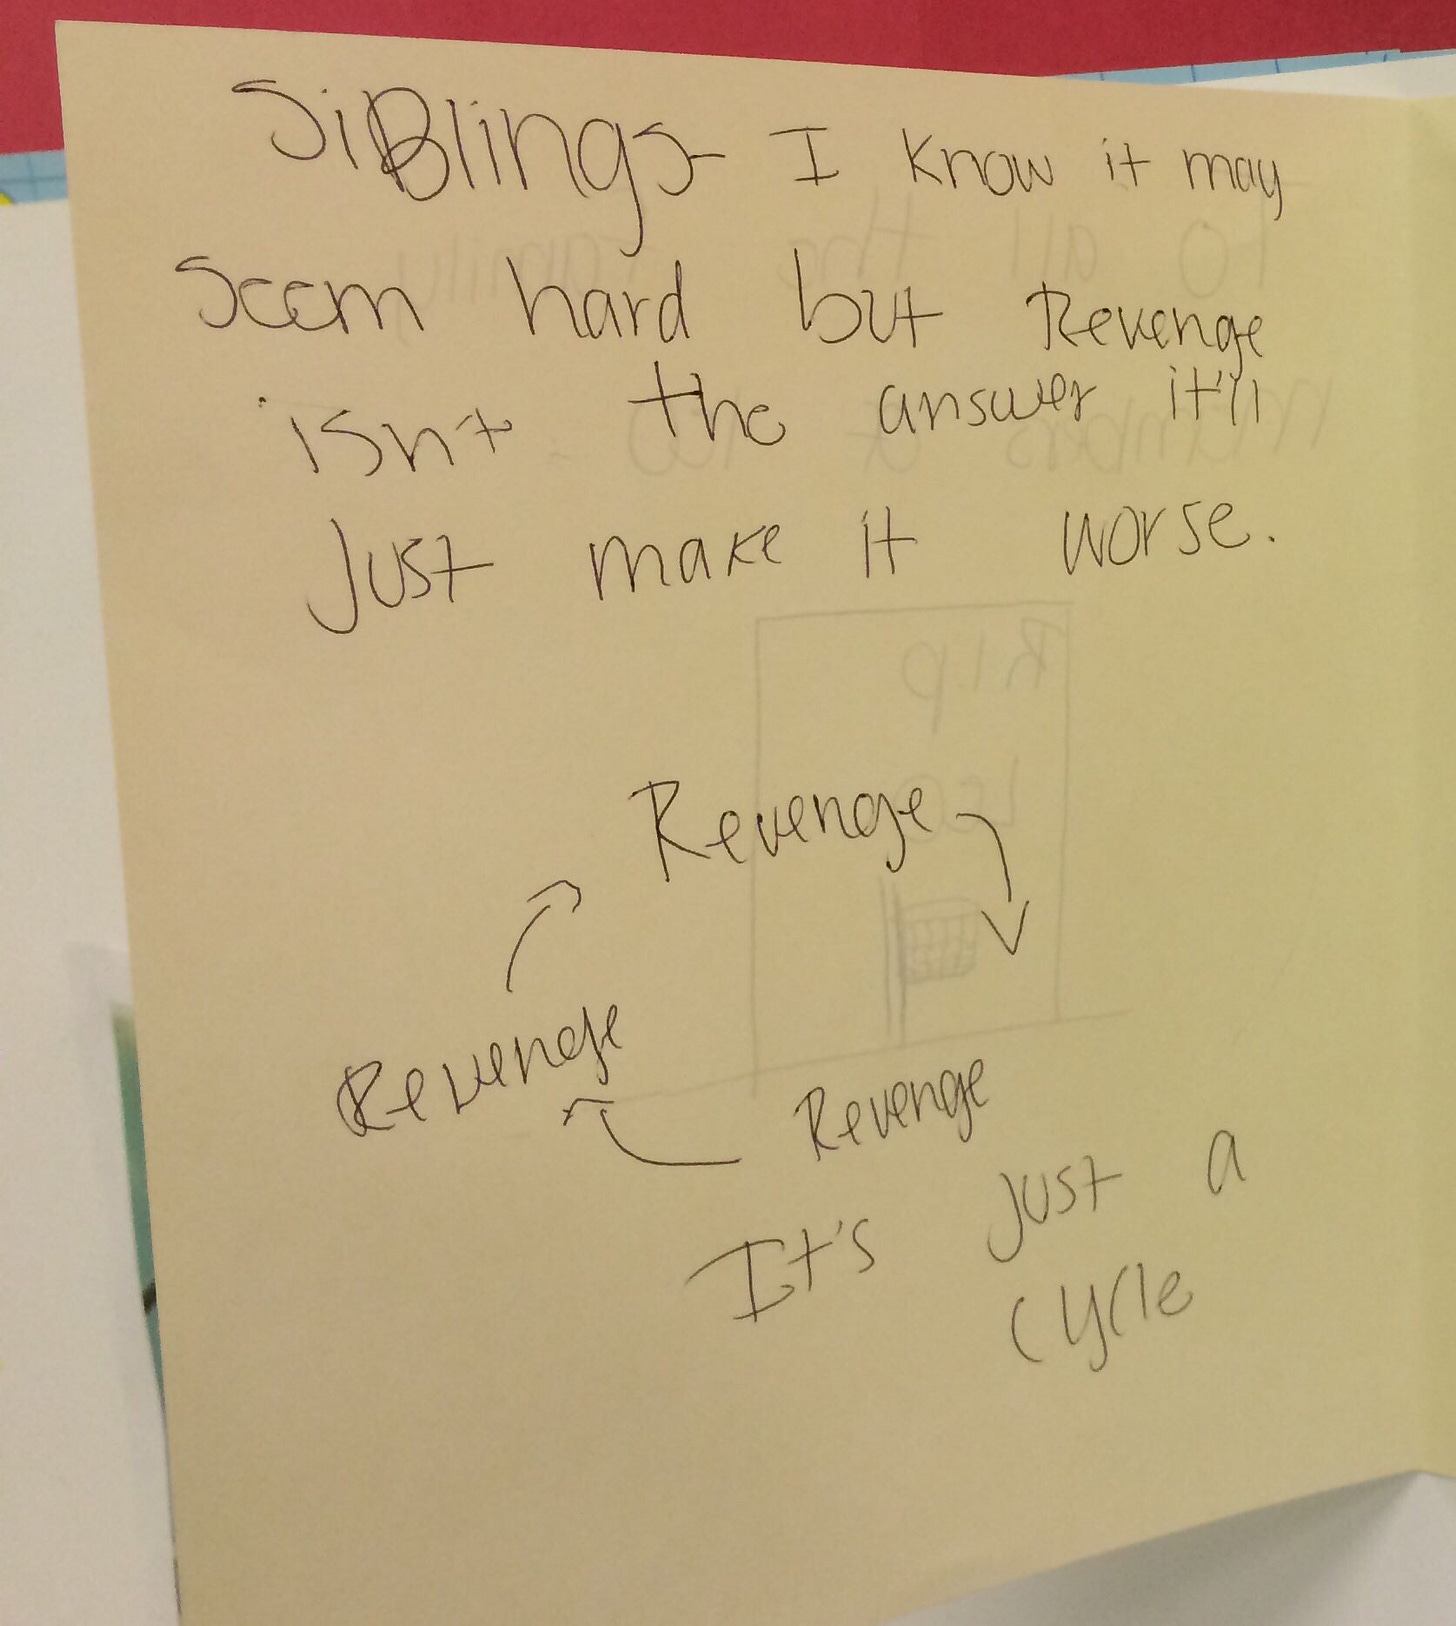 SiBlings- I know it may
seem hard but Revenge
isnt the answer it'll
Just make it worse.
Revenge
Revenge
Revenge
It's just a
cycle